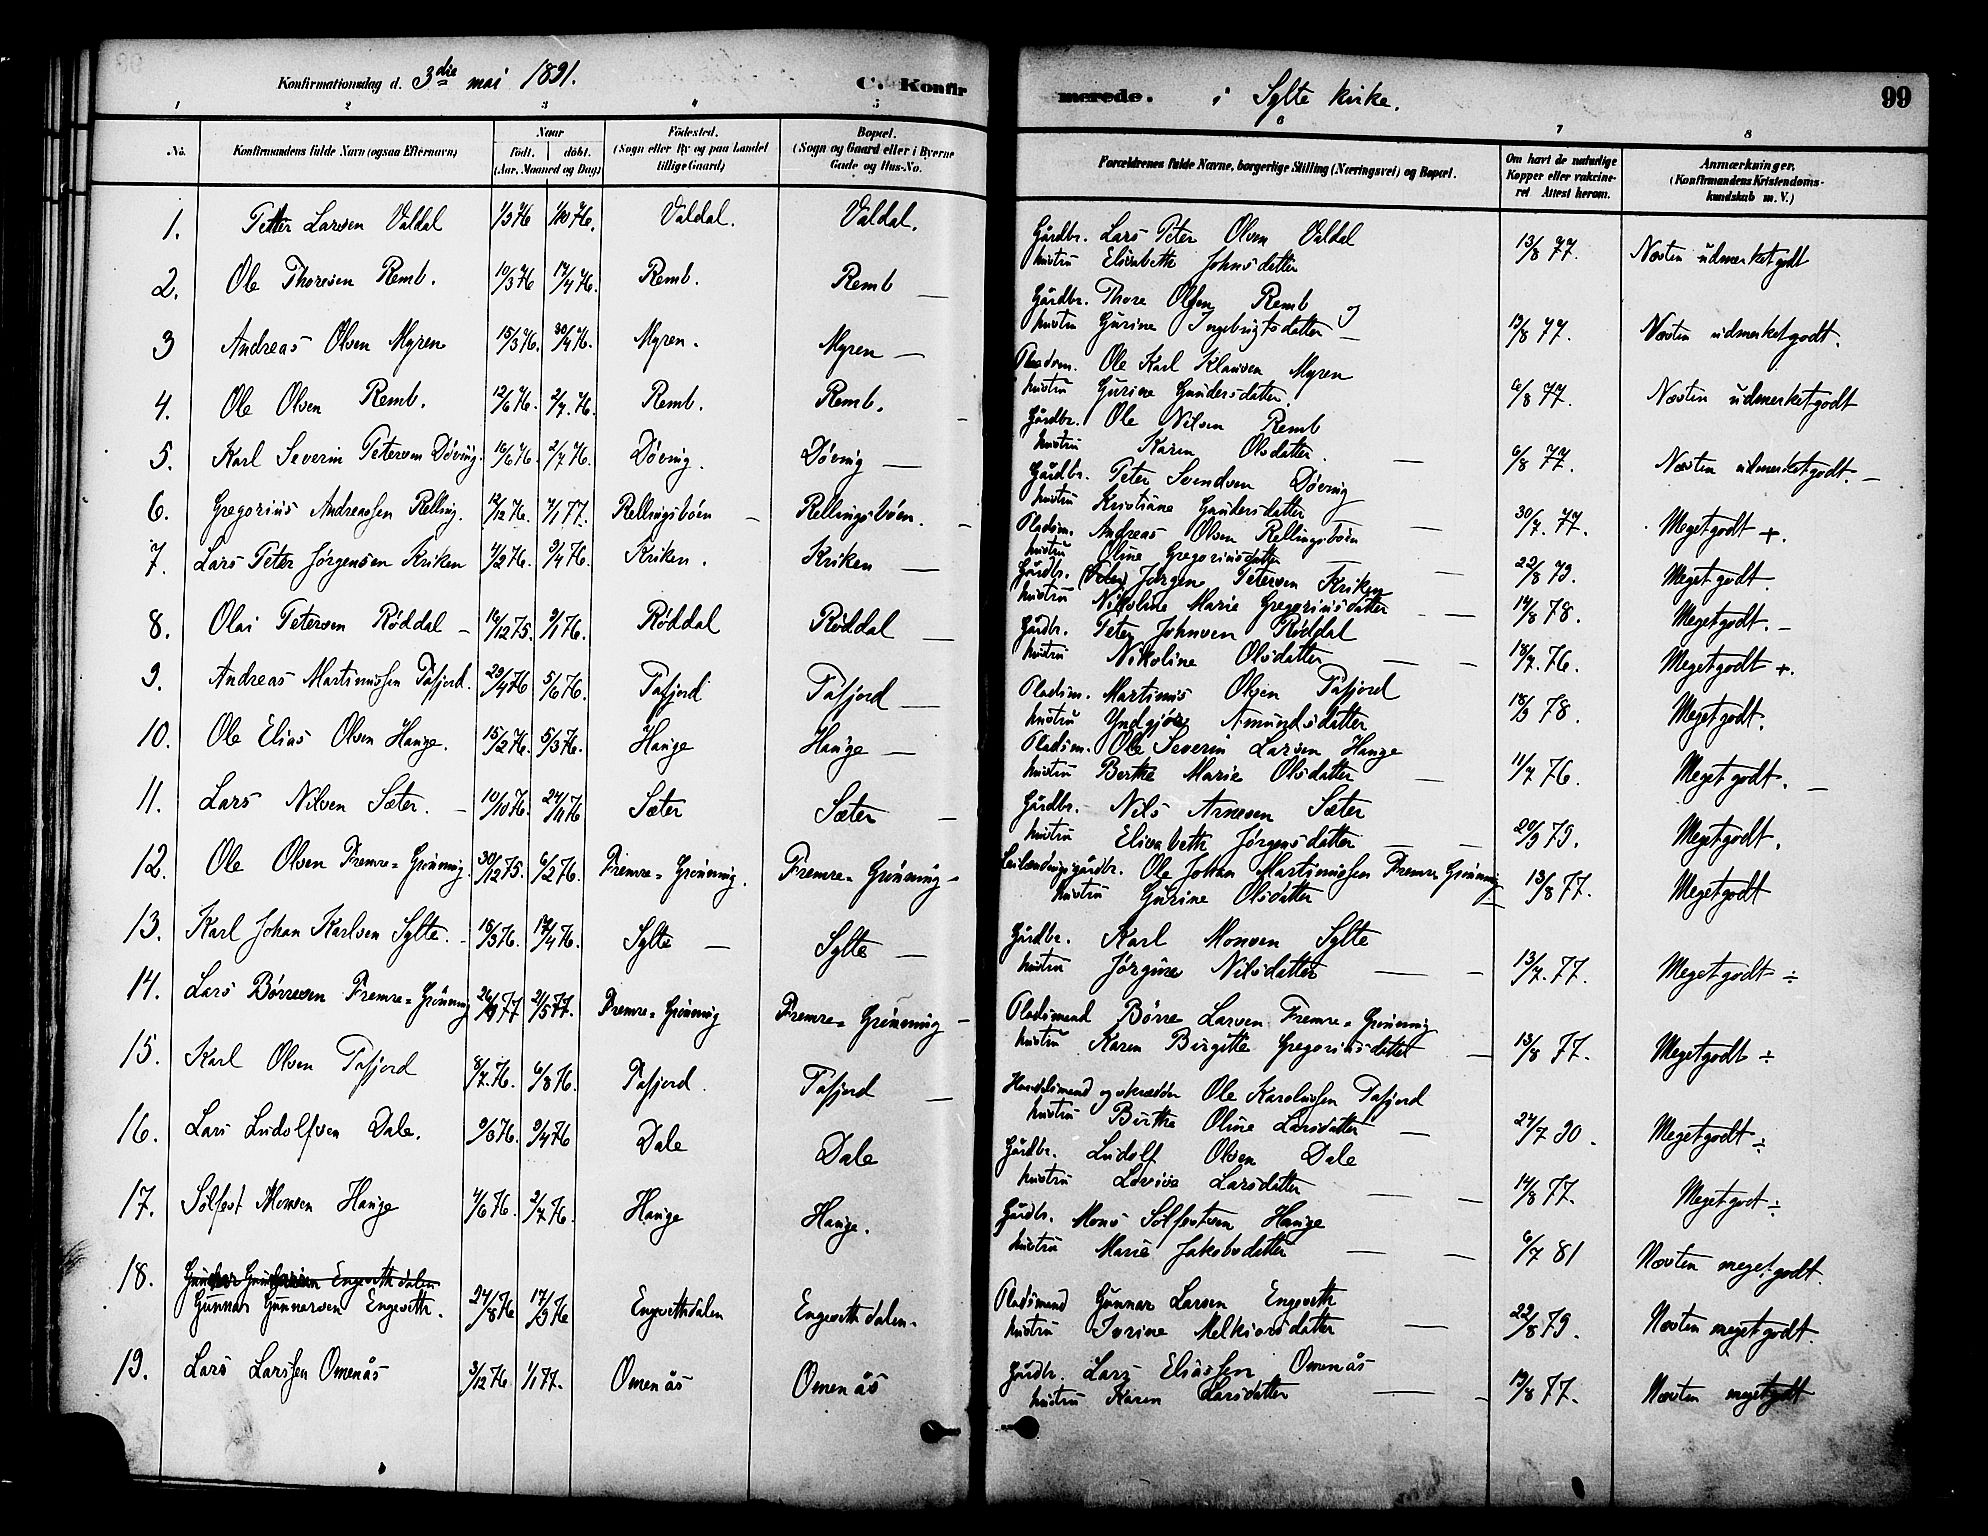 Konfirmationsdag d. 3die mai 1891. C. Konfir
merede. i Sylte kirke. 99
1 2 3 " 5 6 7 8
No. Konfirmandens fulde Navn (ogsaa Efternavn) Naar födt. döbt. (Aar, Maaned og Dag) Födested. (Sogn eller By og paa Landet tillige Gaard) Bopæl. (Sogn og Gaard eller i Byerne Gade og Hus-No.
Forældrenes fulde Navne, borgerlige Stilling (Næringsvei) og Bopæl. Om havt de naturlige Kopper eller vakcineret Attest herom. Anmærkninger. (Konfirmandens Kristendomskundskab m. V.)
1. Petter Larsen Valdal 1/3 76 Valdal. Valdal.
Gårdbr. Lars Peter Olsen Valdal
hustru Elisabeth Johnsdatter 13/8 77. Næsten udmerketgodt
2. Ole Thoresen Remb. 10/3 76 17/4 76. Remb. Remb —
Gårdbr. Thore Olsen Remb og
hustru Gurine Ingebrigtsdatter — 13/8 77. Næsten udmerketgodt.
3 Andreas Olsen Myren 15/3 76. 30/4 76. Myren. Myren —
Pladsm. Ole Karl Klausen Myren
hustru Gurine Gundersdatter. 6/8 77. Næsten udmerketgodt
4. Ole Olsen Remb. 12/6 76. 2/7. 76. Remb. Remb.
Gårdbr. Ole Nilsen Remb
hustru Karen Olsdatter. — 6/8 77. Næsten udmerketgodt. —
5. Karl Severin Petersen Döving. 16/6 76. 2/7 76. Döving. Döving —
Gårdbr. Peter Svendsen Döving
hustru Kristiane Gundersdatter — 30/7. 77. Megetgodt +.
6. Gregorius Andreassen Relling. 12/12 76. 7/1 77. Rellingsböen — Rellingsböen. —
Pladsm. Andreas Olsen Rellingsböen
hustru Oline Gregoriusdatter — 22/8 79. Megetgodt.
7. Lars Peter Jörgensen Kriken 4/2 76. 9/4 76. Kriken. Kriken —
Gårdbr. Jörgen Petersen Kriken
hustru Nikoline Marie Gregoriusdatter — 14/8 78. Megetgodt. —
8. Olai Petersen Röddal — 14/12 75. 9/1 76. Röddal Röddal —
Gårdbr. Peter Johnsen Röddal
hustru Nikoline Olsdatter — 18/7. 76. Megetgodt +.
9. Andreas Martinussen Tafjord. 29/4 76 5/6 76. Tafjord Tafjord —
Pladsm. Martinus Olsen Tafjord
hustru Yndgjöre Amundsdatter 18/9 78. Megetgodt.
10. Ole Elias Olsen Hauge. 15/2 76. 5/3 76. Hauge Hauge —
Pladsm. Ole Severin Larsen Hauge
hustru Berthe Marie Olsdatter — 11/7 76. Megetgodt. —
11. Lars Nilsen Sæter. — 10/10 76. Sæter Sæter —
Gårdbr. Nils Arnesen Sæter
hustru Elisabeth Jörgensdatter — 20/9 79. Megetgodt.
12. Ole Olsen Fremre=Grönning. 30/12 75. 6/2 76. Fremre=Grönning. Fremre=Grönning —
Leilændingsgårdbr. Ole Johan Martinussen Fremre Grönning
hustru Gurine Olsdatter — 13/8 77. Megetgodt
13. Karl Johan Karlsen Sylte. — 15/3 76. 17/4 76. Sylte — Sylte —
Gårdbr. Karl Monsen Sylte
hustru Jörgine Nilsdatter — 13/7. 77. Megetgodt ÷
14. Lars Börresen Fremre=Grönning 21/5 77. Fremre=Grönning Fremre=Grönning —
Pladsmand Börre Larsen Fremre=Grönning
hustru Karen Birgitte Gregoriusdatter — 13/8 77. Megetgodt ÷
15. Karl Olsen Tafjord 8/7. 76. 6/8 76. Tafjord. Tafjord —
og skrædder Ole Karolussen Tafjord
hustru Birthe Oline Larsdatter — 24/7 90. Megetgodt ÷
16. Lars Ludolfsen Dale. 9/3 76. 9/4 76 Dale Dale
Gårdbr. Ludolf Olsen Dale
hustru Lovise Larsdatter — 14/8 77. Megetgodt ÷
17. Sölfest Monsen Hauge 4/6 76. 2/7 76. Hauge Hauge.
Gårdbr. Mons Sölfestsen Hauge
hustru Marie Jakobsdatter — 6/7 81 Næsten megetgodt.
18. Gunnar Gunnarsen Engesethdalen
Gunnar Gunnarsen Engeseth. 24/8 76 17/9 76 Engesethdalen Engesethdalen.
Pladsmand Gunnar Larsen Engeseth
hustru Iverine Melkiorsdatter — 22/8 79. Næsten megetgodt.
19. Lars Larssen Omenås 3/12 76 1/1 77. Omenås Omenås
Gårdbr. Lars Eliassen Omenås
hustru Karen Larsdatter — 13/8 77. Næsten megetgodt